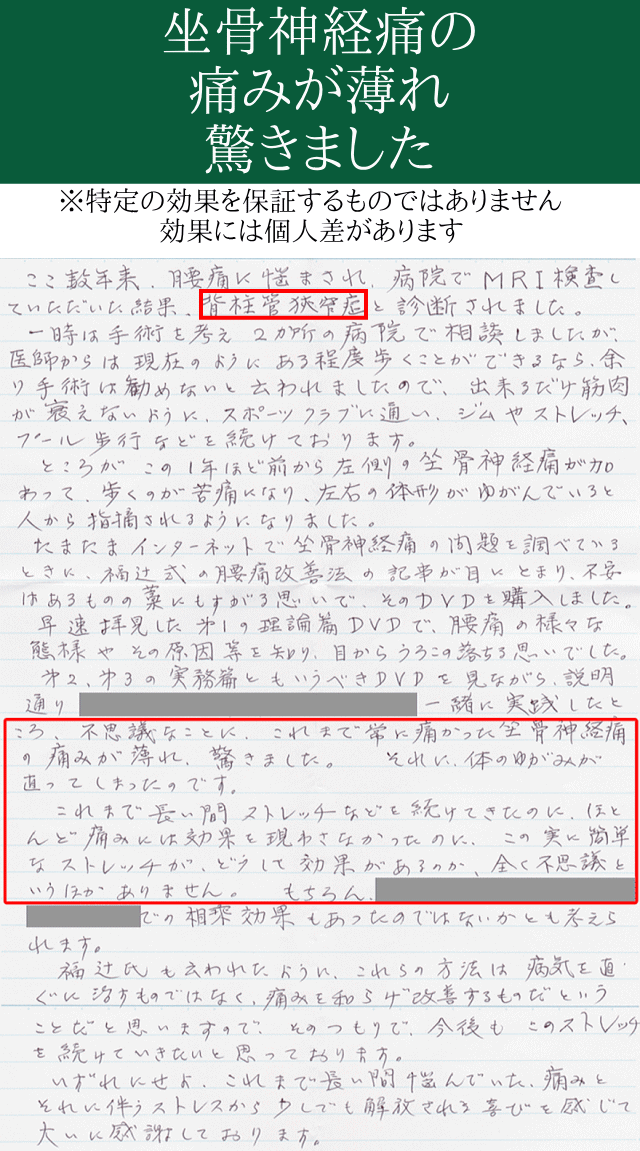 坐骨神経痛の
痛みが薄れ
驚きました
※特定の効果を保証するものではありません
効果には個人差があります
ここ数年来、腰痛に悩まされ、病院でMRI検査し
ていただいた結果、脊柱管狭窄症と診断されました。
一時は手術を考え2カ所の病院で相談しましたが、
医師からは現在のようにある程度歩くことができるなら、余
り手術は勧めないと云われましたので、出来るだけ筋肉
が衰えないように、スポーツクラブに通い、ジムやストレッチ、
プール歩行などを続けております。
ところがこの1年ほど前から左側の坐骨神経痛が加
わって、歩くのが苦痛になり、左右の体形がゆがんでいると
人から指摘されるようになりました。
たまたまインターネットで坐骨神経痛の問題を調べている
ときに、福辻式の腰痛改善法の記事が目にとまり、不安
はあるものの藁にもすがる思いで、そのDVDを購入しました。
早速拝見した第1の理論篇DVDで、腰痛の様々な
態様やその原因等を知り、目からうろこの落ちる思いでした。
第2、第3の実務篇ともいうべきDVDを見ながら、説明
通り 一緒に実践したと
ころ、不思議なことに、これまで常に痛かった坐骨神経痛
の痛みが薄れ、驚きました。 それに、体のゆがみが
直ってしまったのです。
これまで長い間ストレッチなどを続けてきたのに、ほと
んど痛みには効果を現わさなかったのに、この実に簡単
なストレッチが、どうして効果があるのか、全く不思議と
いうほかありません。 もちろん、
での相乗効果もあったのではないかとも考えら
れます。
福辻氏も云われたように、これらの方法は病気を直
ぐに治すものではなく、痛みを和らげ改善するものだという
ことだと思いますので、そのつもりで、今後もこのストレッチ
を続けていきたいと思っております。
いずれにせよ、これまで長い間悩んでいた、痛みと
それに伴うストレスから少しでも解放される喜びを感じて
大いに感謝しております。